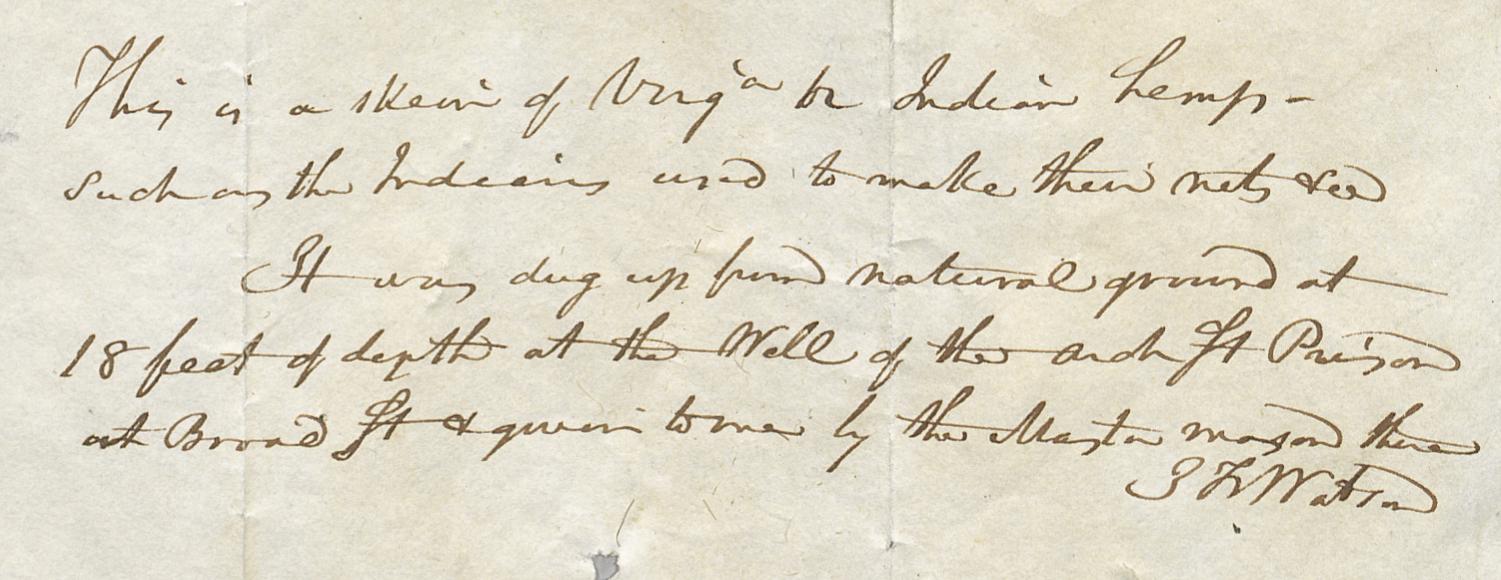 This is a skein of Virga or Indian hemp -
such as the Indians used to make their nets &c
It was dug up from natural ground at
18 feet of depth at the Well of the Arch St Prison
at Broad St & given to me by the Master mason there
J F Watson